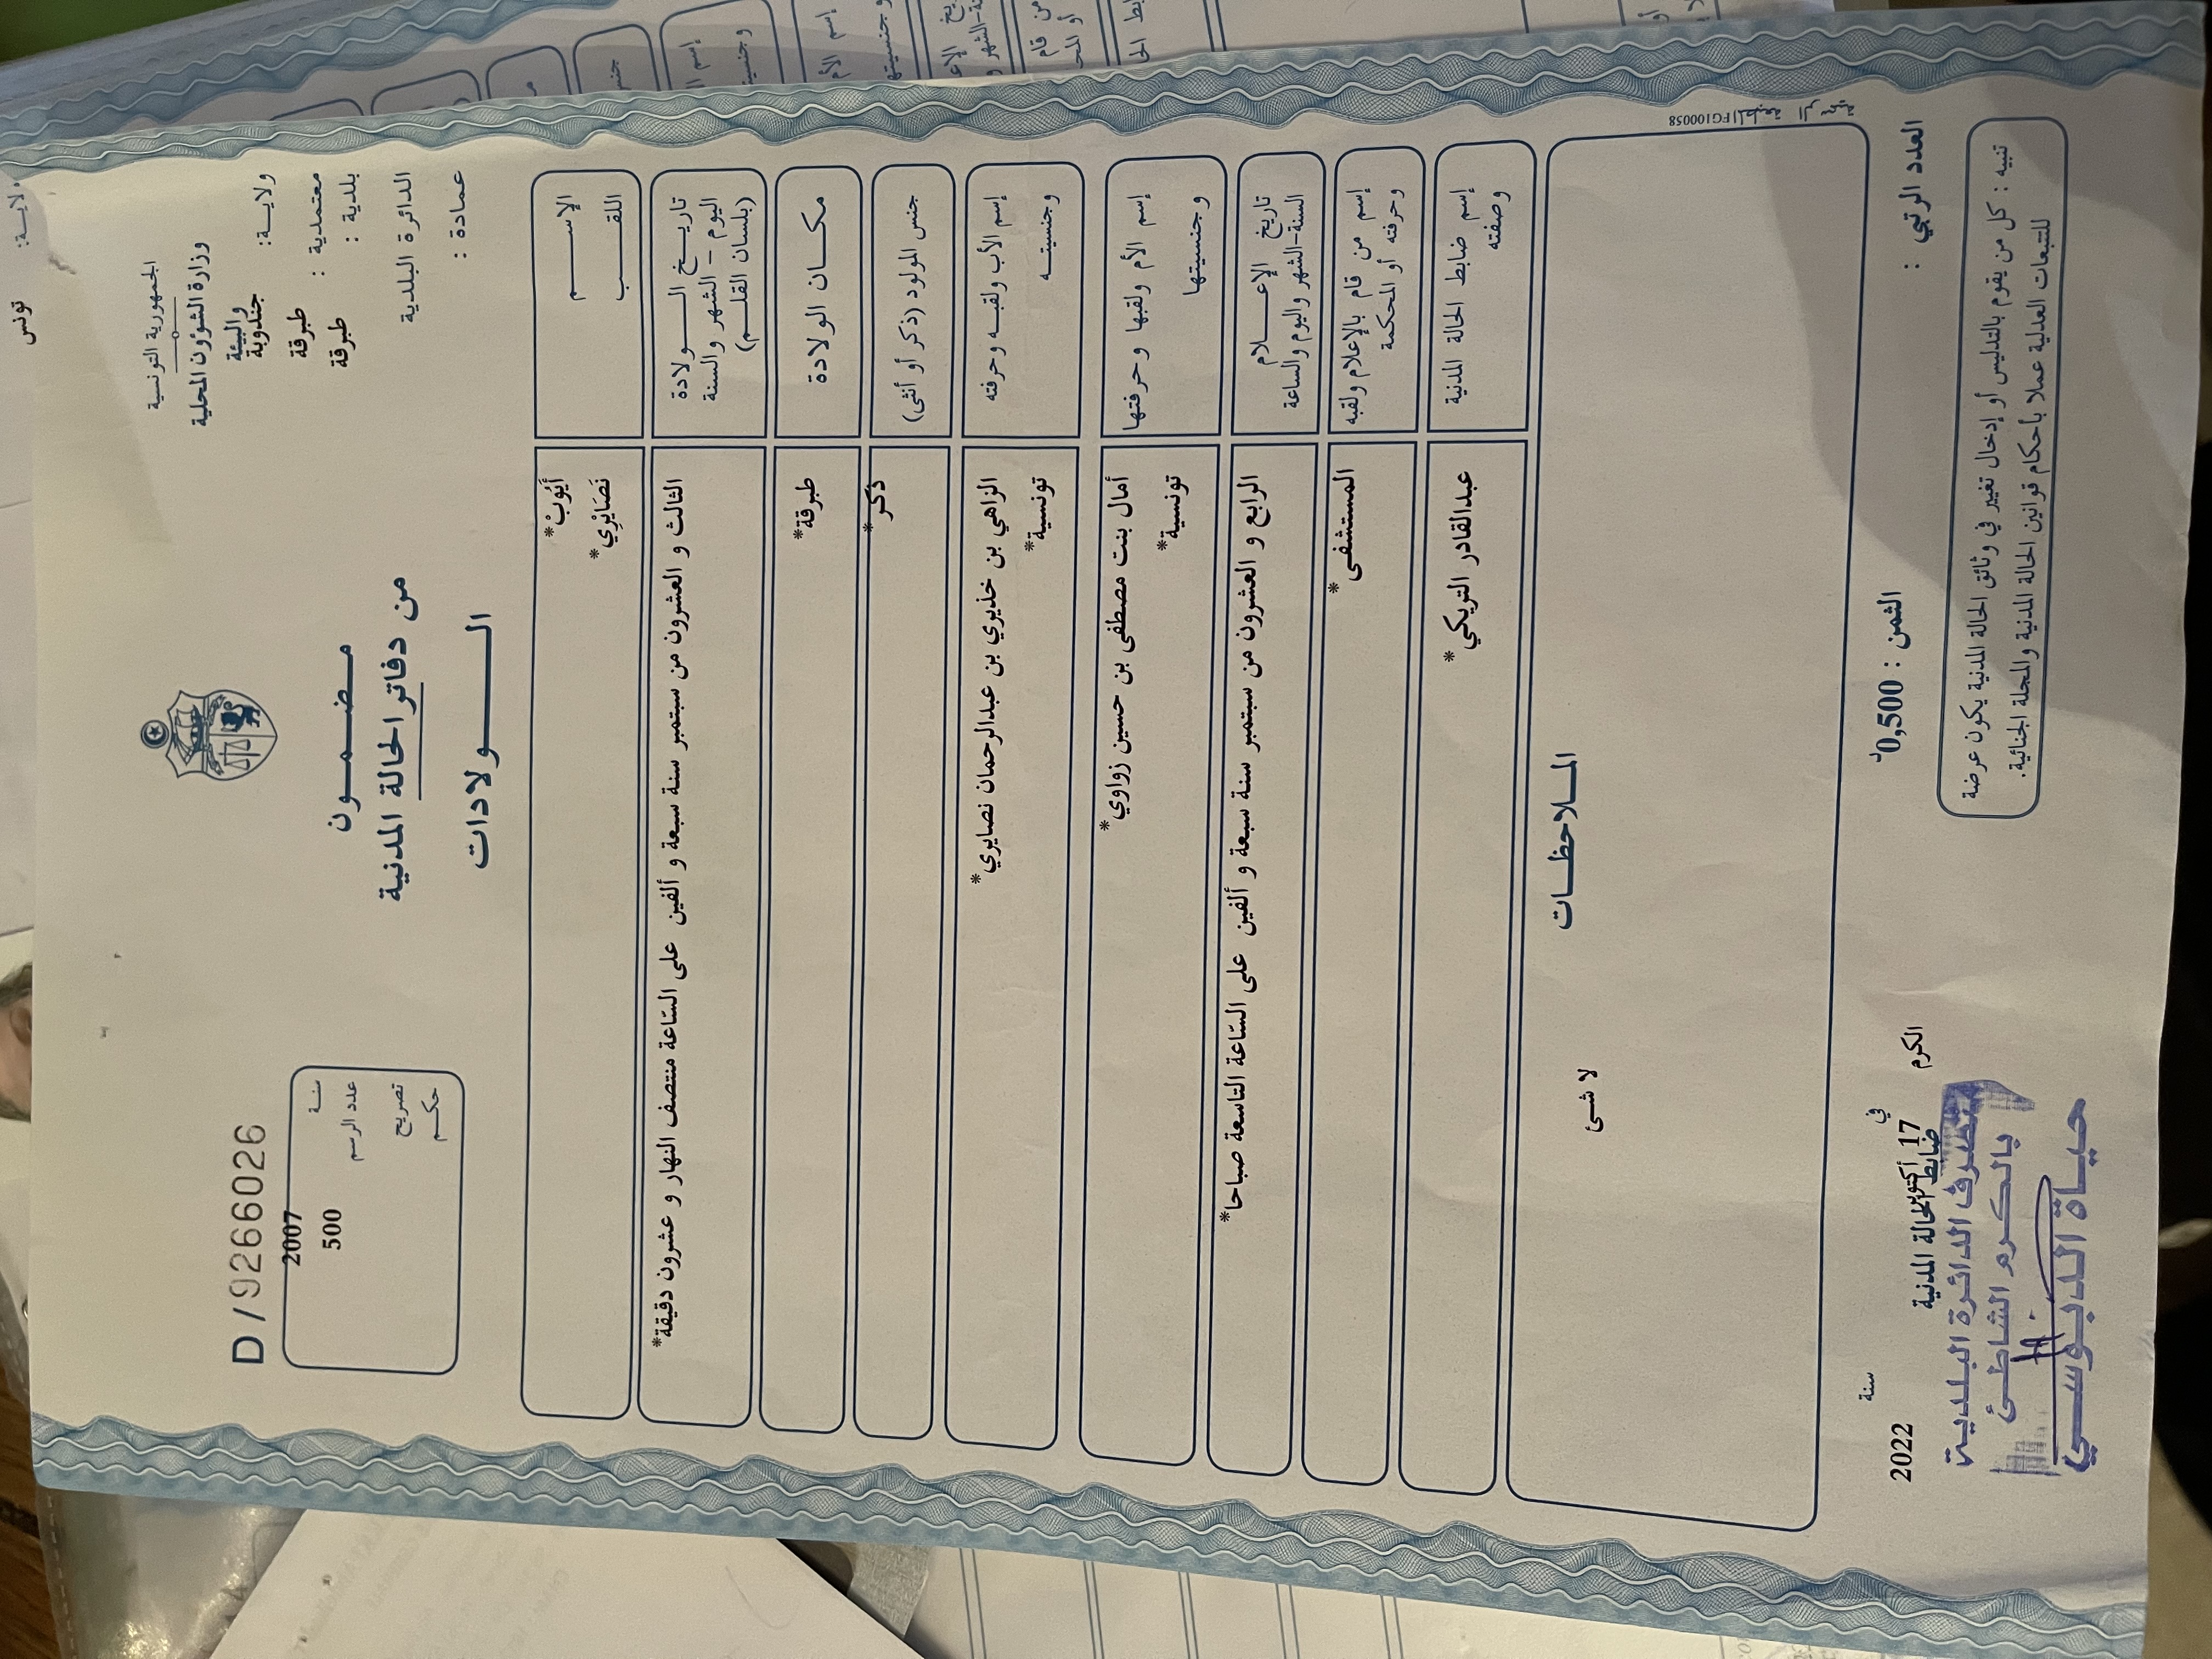 الجمهورية التونسية
وزارة الشؤون المحلية
والبيئة
ولاية: جندوبة
معتمدية : طبرقة
بلدية : طبرقة
الدائرة البلدية
عمادة :
مضمون
من دفاتر الحالة المدنية
الولادات
D / 92660​26
سنة 2007
عدد الرسم 500
تصريح
حكم
الإسم أَيُوبْ*
اللقب نَصَايْرِي*
تاريخ الولادة الثالث و العشرون من سبتمبر سنة سبعة و ألفين على السّاعة منتصف النهار و عشرون دقيقة*
اليوم - الشهر والسنة
(بلسان القلم)
مكان الولادة طبرقة*
جنس المولود (ذكر أو أنثى) ذكر*
إسم الأب ولقبه وحرفته الزاهي بن خذيري بن عبدالرحمان نصايري*
وجنسيته تونسية*
إسم الأم ولقبها وحرفتها أمال بنت مصطفى بن حسين زواوي*
وجنسيتها تونسية*
تاريخ الإعلام الرابع و العشرون من سبتمبر سنة سبعة و ألفين على السّاعة التاسعة صباحا*
السنة-الشهر واليوم والساعة
إسم من قام بالإعلام ولقبه المستشفى*
وحرفته أو المحكمة
إسم ضابط الحالة المدنية عبدالقادر التريكي*
وصفته
الملاحظات
لا شئ
FG100058
العدد الرتبي :
الثمن : 0,500د
الكرم في 17 أكتوبر سنة 2022
ضابط الحالة المدنية
تنبيه : كل من يقوم بالتدليس أو إدخال تغيير في وثائق الحالة المدنية يكون عرضة
للتتبعات العدلية عملا بأحكام قوانين الحالة المدنية والمجلة الجنائية.
متصرف الدائرة البلدية
بالكرم الشاطئ
حياة الدبوسي